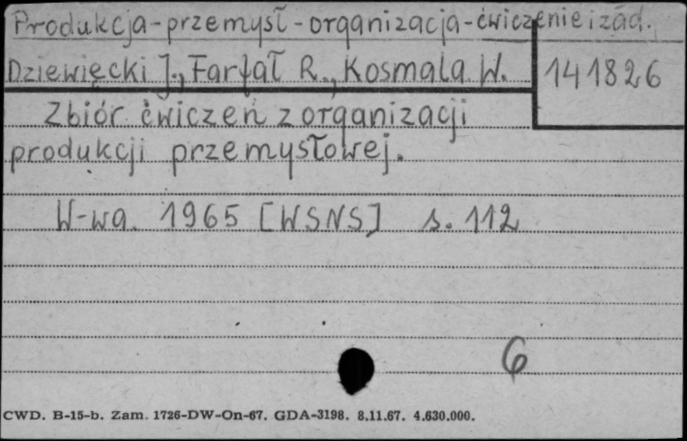 Produkcja-przemysł-organizacja-ćwiczenie i zad.
Dziewięcki J., Farfał R., Kosmala W.
141826
Zbiór ćwiczeń z organizacji
produkcji przemysłowej.
W-wa. 1965 [WSNS] s. 112
6
CWD. B-15-b. Zam. 1726-DW-On-67. GDA-3198. 8.11.67. 4.630.000.